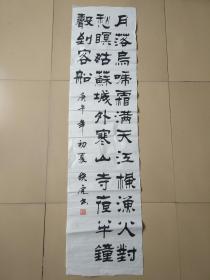 月落烏啼霜满天江楓漁火對
愁瞑姑蘇城外寒山寺夜半鐘
聲到客船
庚午年初夏